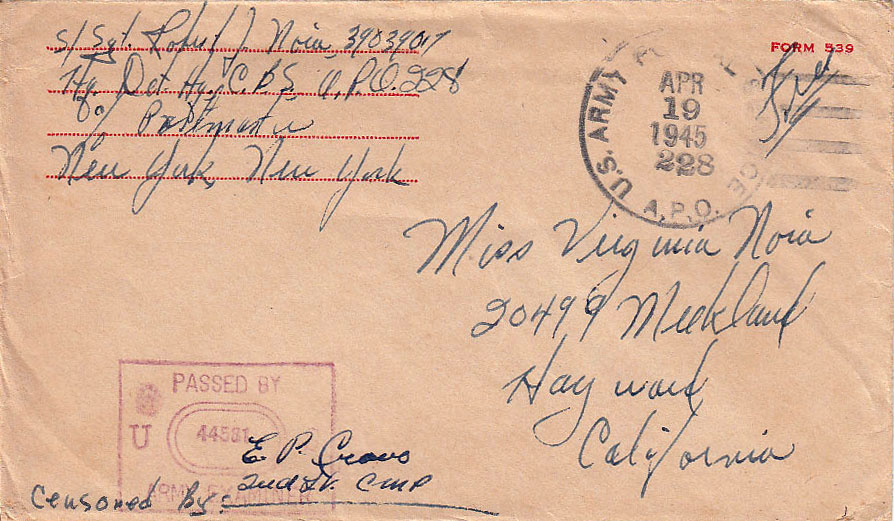 S/Sgt. Robert J. Noia 39039017
Hq. Det. Hq. C.B.S. A.P.O. 228
c/o Postmaster
New York, New York
FORM 539
Free
U.S. ARMY POSTAL SERVICE
APR
19
1945
228
A.P.O.
Miss Virginia Noia
20499 Meekland
Hayward
California
PASSED BY
U
44561
ARMY EXAMINER
E. P.
2nd Lt. CMP
Censored By: